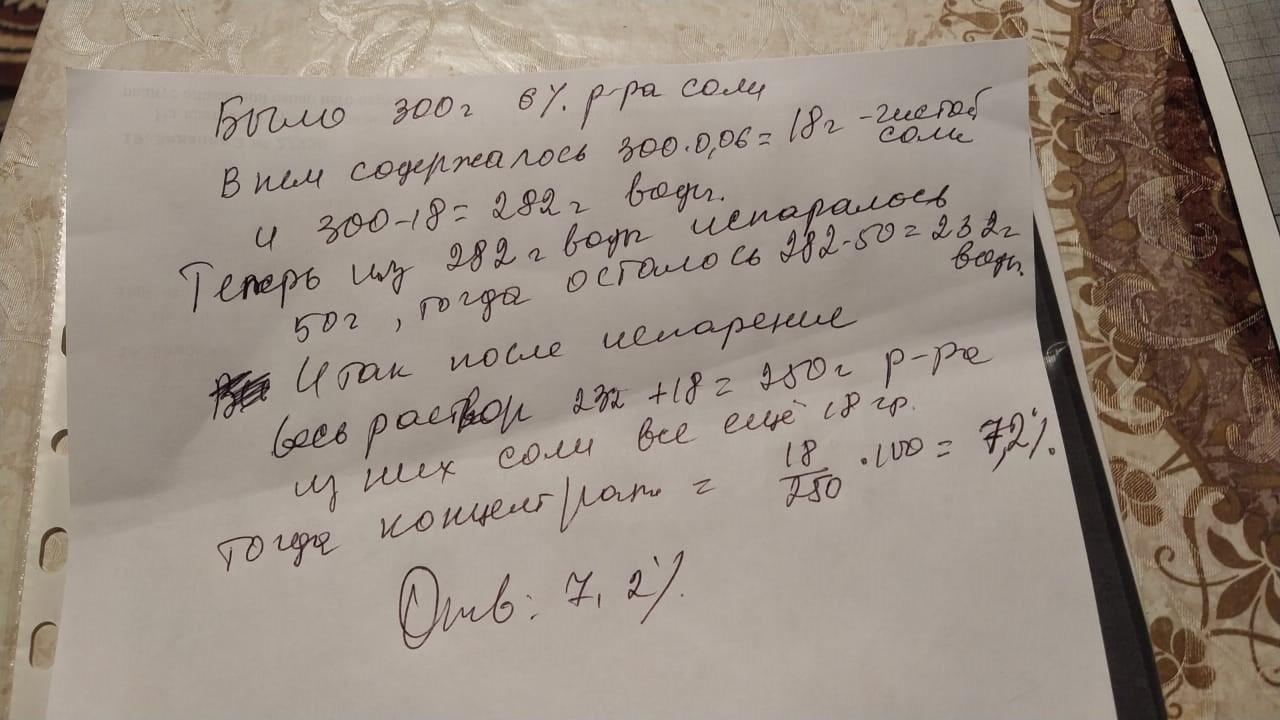 Было 300г 6% р-ра соли
В нем содержалось 300·0,06=18г - чистой соли
и 300-18=282г воды.
Теперь из 282г воды испаралось
50г, тогда осталось 282-50=232г воды.
Итак после испарение
весь раствор 232+18=250г р-ра
из них соли все ещё 18 гр.
тогда концентрат = 18/250 ·100 = 7,2%.
Отв: 7,2%